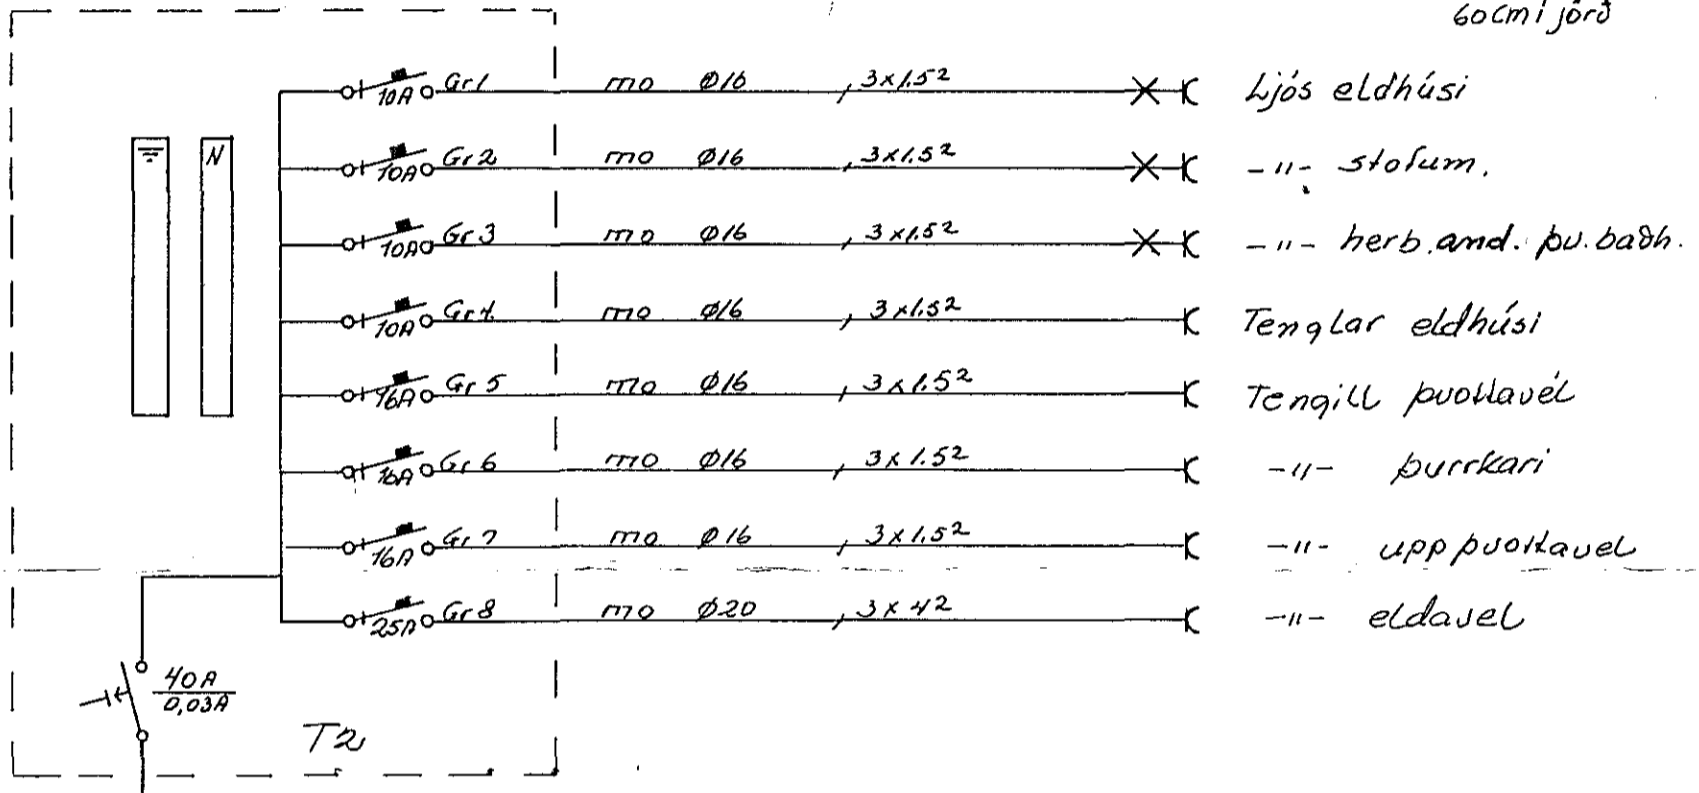 60cm í jörð
10A Gr1 mo Ø16 3x1.5² Ljós eldhúsi
N
10A Gr2 mo Ø16 3x1.5² -"- stofum.
10A Gr3 mo Ø16 3x1.5² -"- herb. and. þv. baðh.
10A Gr4 mo Ø16 3x1.5² Tenglar eldhúsi
16A Gr5 mo Ø16 3x1.5² Tengill þvottavél
16A Gr6 mo Ø16 3x1.5² -"- þurrkari
16A Gr7 mo Ø16 3x1.5² -"- uppþvottavel
25A Gr8 mo Ø20 3x4² -"- eldavel
40A
0,03A
T2